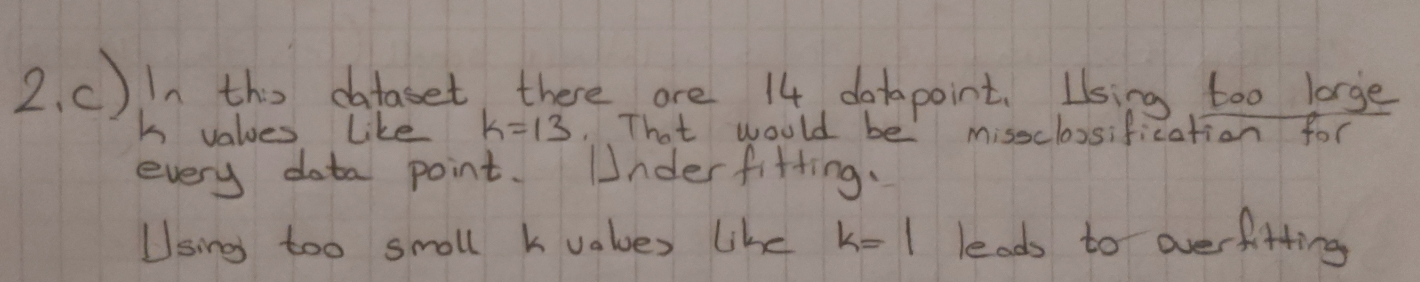 2.c) In this dataset there are 14 datapoint. Using too large
k values Like k=13. That would be missclassification for
every data point. Underfitting.
Using too small k values like k=1 leads to overfitting